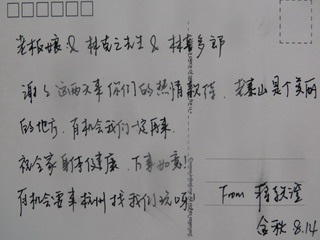 老板娘 & 林克之先生 & 林喜多郎
谢谢 这两天来你们的热情款待。老寨山是个美丽
的地方，有机会我们一定再来。
祝全家身体健康，万事如意!!
有机会要来杭州找我们玩哦
From
金秋 8.14